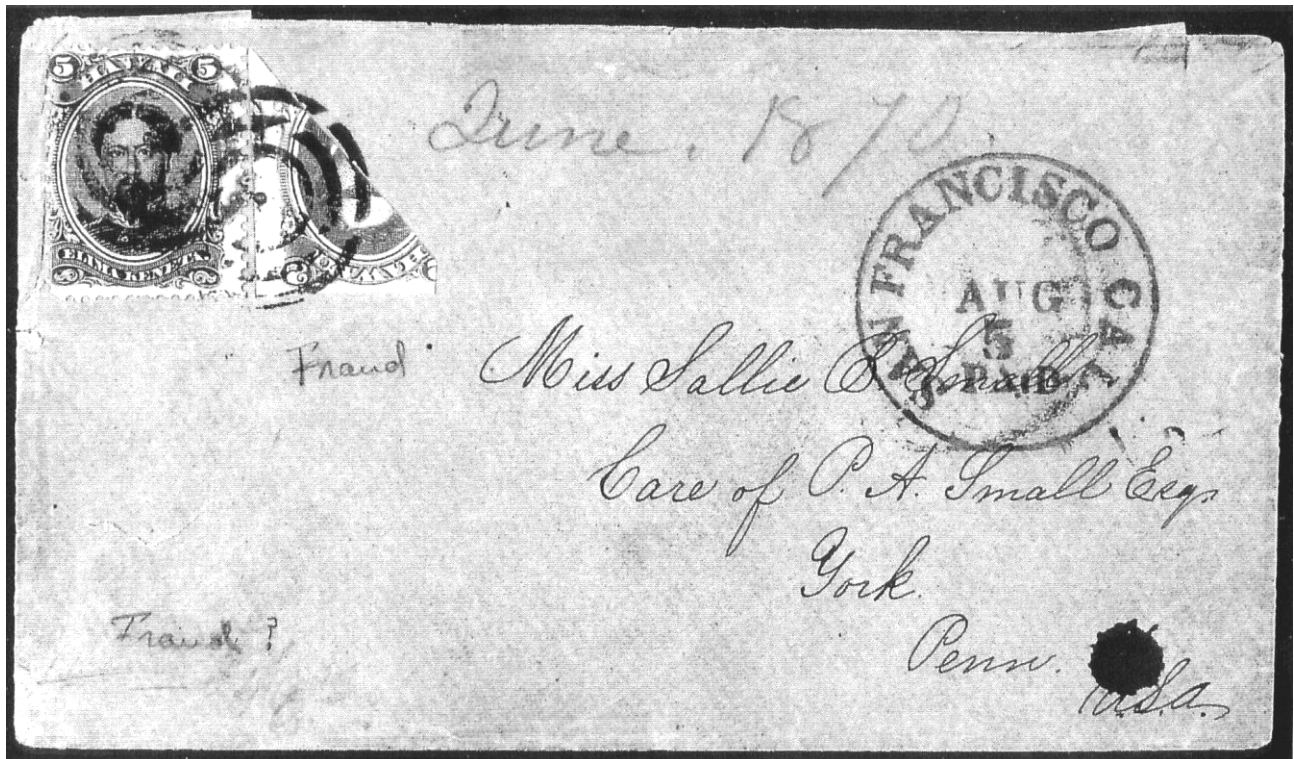 5 HAWAII 5
ELIMA KENETA
June. 1870
SAN FRANCISCO CAL
AUG
5
PAID
Fraud
Miss Sallie E. Small
Care of P. A. Small Esq.
York.
Penn.
U.S.a.
Fraud?